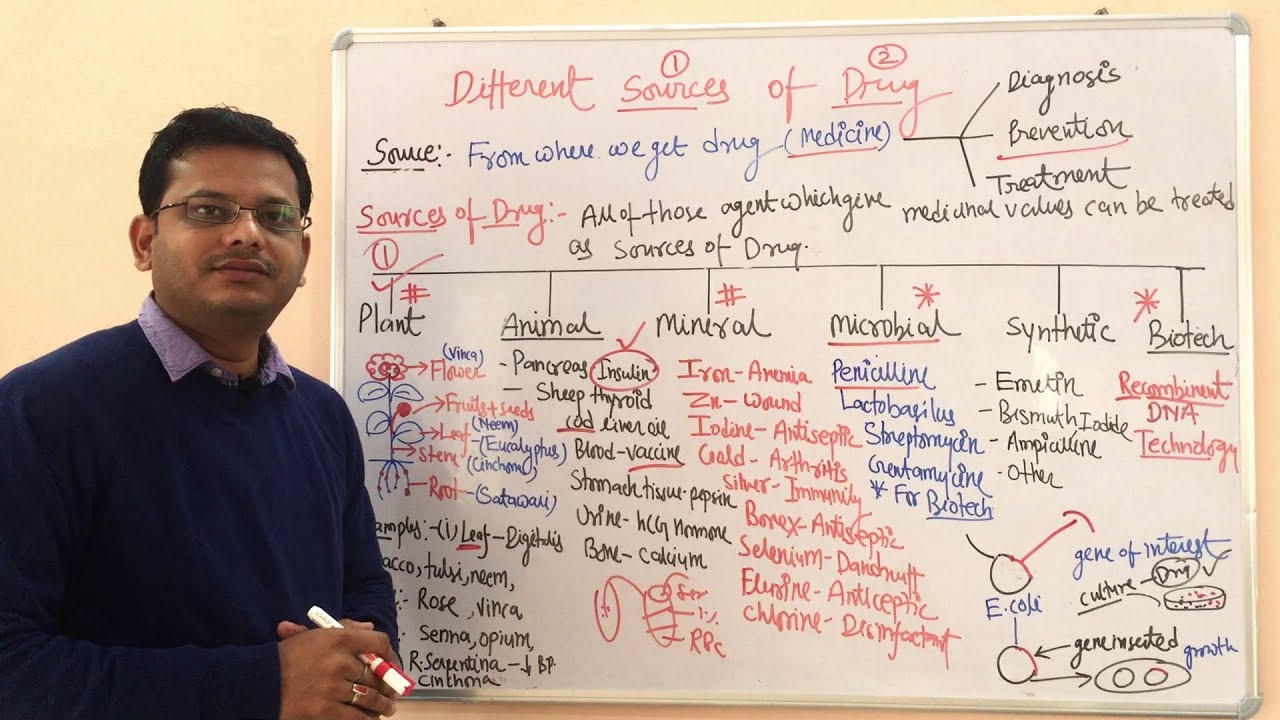 ① ②
Different Sources of Drug
Diagnosis
Prevention
Treatment
Source:- From where we get drug (Medicine)
Sources of Drug:- All of those agent which give medicinal values can be treated
as Sources of Drug.
①
Plant
(Vinca)
Flower
Fruits + seeds
Leaf (Neem)
(Eucalyptus)
Stem (Cinchona)
Root - (Satawari)
amples:-(i) Leaf - Digitalis
acco, tulsi, neem,
:- Rose, vinca,
:- Senna, opium,
R. Serpentina → ↓ BP
cinchona
Animal
- Pancreas Insulin
- Sheep thyroid
cod liver oil
Blood-vaccine
Stomach tissue-pepsin
Urine - hCG hormone
Bone - calcium
RBC
# Mineral
Iron - Anemia
Zn - Wound
Iodine - Antiseptic
Gold - Arthritis
Silver - Immunity
Borex - Antiseptic
Selenium - Dandruff
Anticeptic
Chlorine - Disinfactant
* Microbial
Penicilline
Lactobasilus
Streptomycin
Gentamycine
* For Biotech
Synthetic
- Emetin
- Bismuth Iodide
- Ampicilline
- Other
* Biotech
Recombinent
DNA
Technology
gene of interest
E.coli
culture - Drug
gene inserted
growth